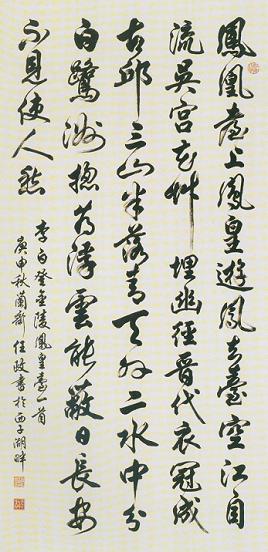 鳳凰臺上鳳皇遊鳳去臺空江自
流吳宮花艸埋幽徑晉代衣冠成
古邱三山半落青天外二水中分
白鷺洲總為浮雲能蔽日長安
不見使人愁
李白登金陵鳳皇臺一首
庚申秋蘭齋任政書於西子湖畔